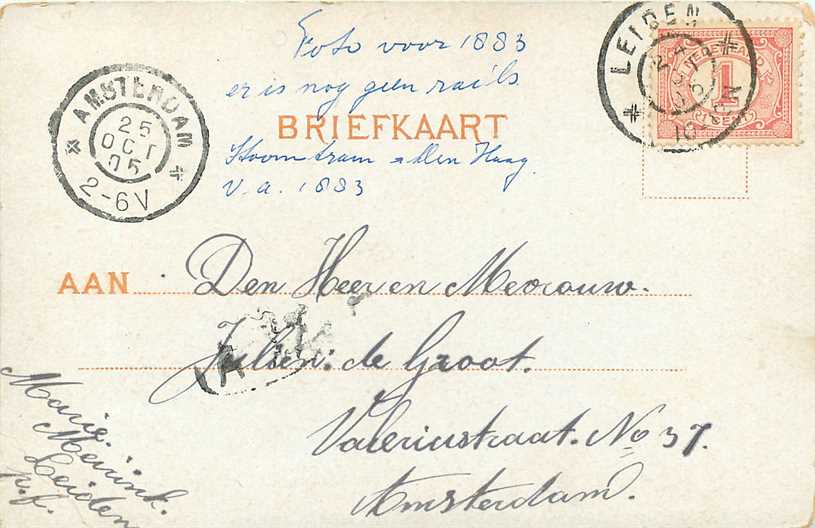 Foto voor 1883
er is nog geen rails
BRIEFKAART
Stoomtram - Den Haag
v.a. 1883
AMSTERDAM
25
OCT
05
2-6V
LEIDEN
24
1
AAN Den Heer en Mevrouw.
Julsen: de Groot.
Valeriusstraat. No 37.
Amsterdam.
Marie.
Leiden
p.f.